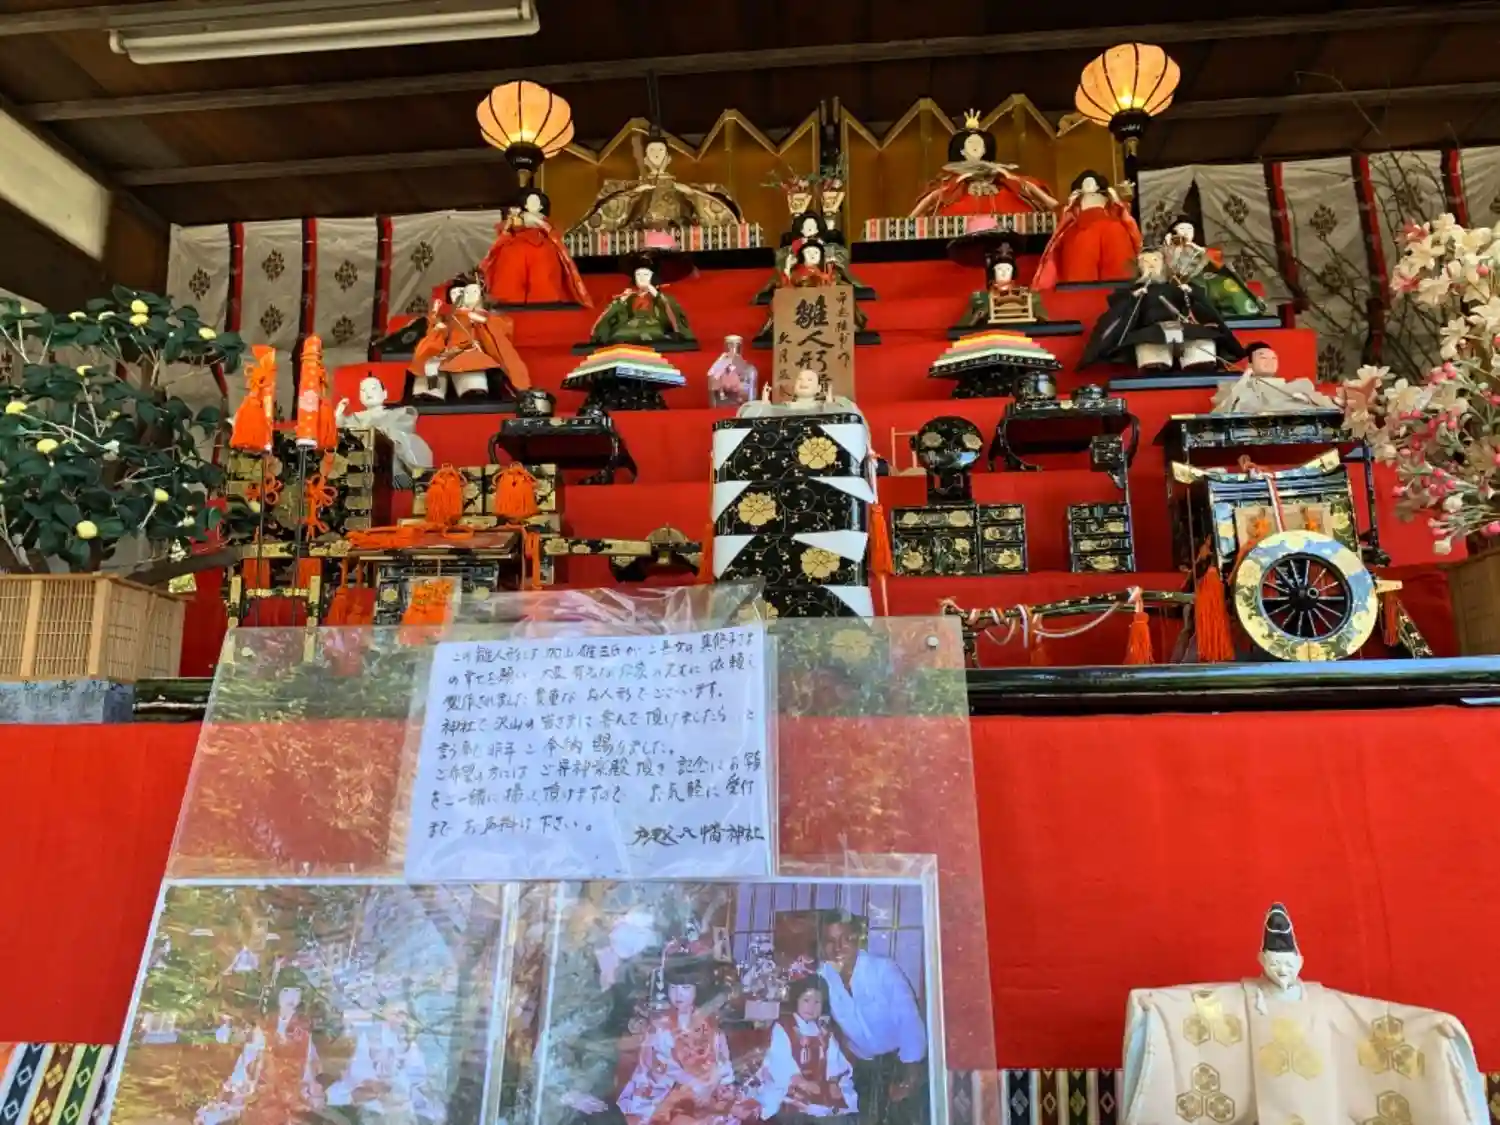 雛人形
この雛人形は 加山雄三氏が ご長女の 真悠子さま
の幸せを願い 大変 有名な作家の先生に 依頼し
製作されました 貴重な お人形でございます。
神社で 沢山の 皆さまに 喜んで頂けましたら と
昨年 ご奉納 賜りました。
ご希望の方には ご昇神楽殿 頂き 記念に お写真
をご一緒に撮って頂けますので お気軽に 受付
まで お声掛け下さい。
八幡神社